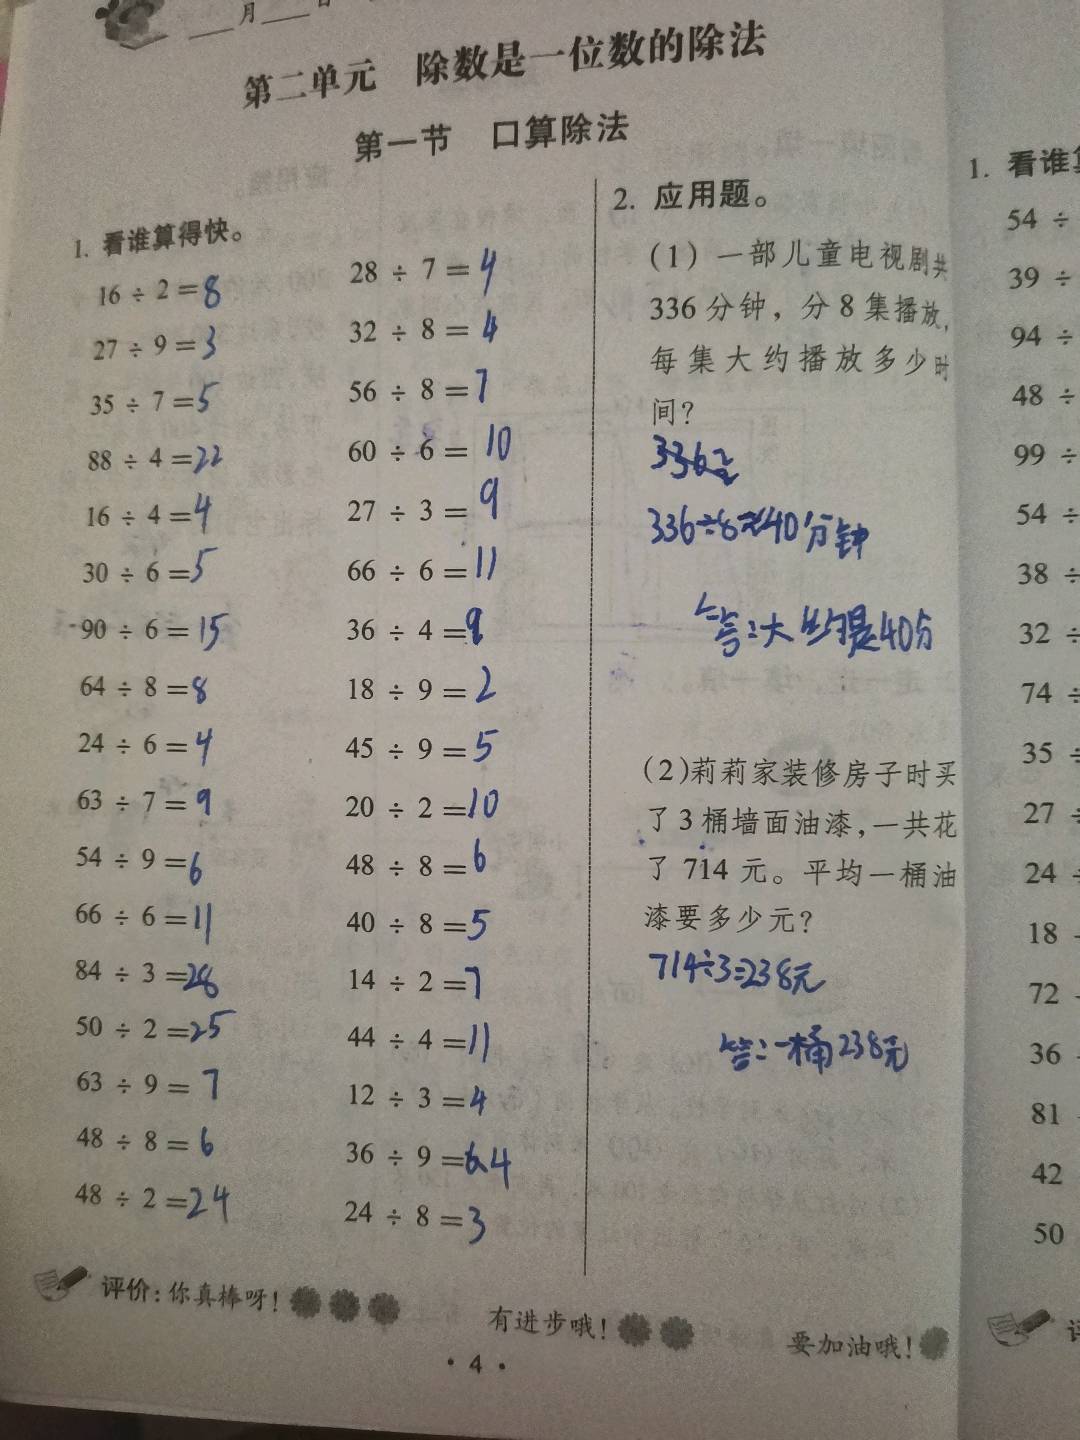 月 日
第二单元 除数是一位数的除法
第一节 口算除法
1. 看谁算得快。
16 ÷ 2 = 8
27 ÷ 9 = 3
35 ÷ 7 = 5
88 ÷ 4 = 22
16 ÷ 4 = 4
30 ÷ 6 = 5
90 ÷ 6 = 15
64 ÷ 8 = 8
24 ÷ 6 = 4
63 ÷ 7 = 9
54 ÷ 9 = 6
66 ÷ 6 = 11
84 ÷ 3 = 28
50 ÷ 2 = 25
63 ÷ 9 = 7
48 ÷ 8 = 6
48 ÷ 2 = 24
28 ÷ 7 = 4
32 ÷ 8 = 4
56 ÷ 8 = 7
60 ÷ 6 = 10
27 ÷ 3 = 9
66 ÷ 6 = 11
36 ÷ 4 = 9
18 ÷ 9 = 2
45 ÷ 9 = 5
20 ÷ 2 = 10
48 ÷ 8 = 6
40 ÷ 8 = 5
14 ÷ 2 = 7
44 ÷ 4 = 11
12 ÷ 3 = 4
36 ÷ 9 = 4
24 ÷ 8 = 3
2. 应用题。
(1) 一部儿童电视剧共
336 分钟，分 8 集播放，
每集大约播放多少时
间？
336
336÷8≈40分钟
答：大约是40分
(2)莉莉家装修房子时买
了 3 桶墙面油漆，一共花
了 714 元。平均一桶油
漆要多少元？
714÷3=238元
答：一桶238元
评价：你真棒呀！
有进步哦！
要加油哦！
· 4 ·
1. 看谁
54 ÷
39 ÷
94 ÷
48 ÷
99 ÷
54 ÷
38 ÷
32 ÷
74 ÷
35 ÷
27 ÷
24 ÷
18
72
36
81
42
50